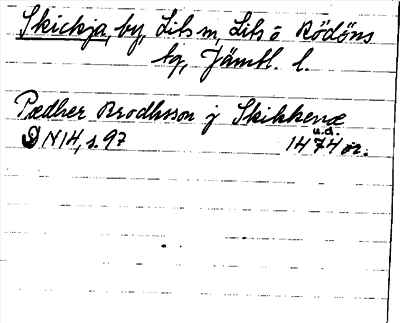 Skickja, by, Lits sn, Lits o Rödöns
tg, Jämtl. l.
Pædher Brodhsson j Skikkenæ
DN 14, s. 97 u.d. 1474 or.